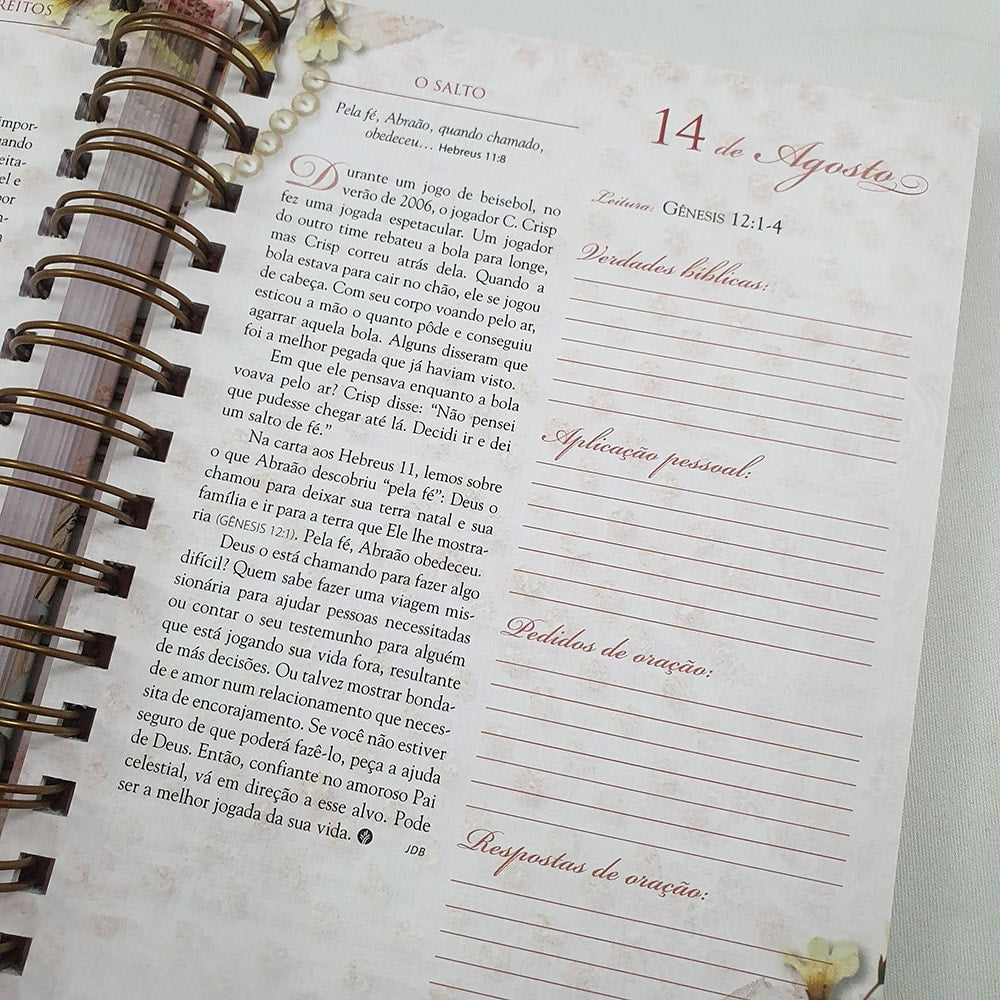 REITOS
impor-
uando
eita-
el e
por-
O SALTO
Pela fé, Abraão, quando chamado,
obedeceu... Hebreus 11:8
Durante um jogo de beisebol, no
verão de 2006, o jogador C. Crisp
fez uma jogada espetacular. Um jogador
do outro time rebateu a bola para longe,
mas Crisp correu atrás dela. Quando a
bola estava para cair no chão, ele se jogou
de cabeça. Com seu corpo voando pelo ar,
esticou a mão o quanto pôde e conseguiu
agarrar aquela bola. Alguns disseram que
foi a melhor pegada que já haviam visto.
Em que ele pensava enquanto a bola
voava pelo ar? Crisp disse: “Não pensei
que pudesse chegar até lá. Decidi ir e dei
um salto de fé.”
Na carta aos Hebreus 11, lemos sobre
o que Abraão descobriu “pela fé”: Deus o
chamou para deixar sua terra natal e sua
família e ir para a terra que Ele lhe mostra-
ria (GÊNESIS 12:1). Pela fé, Abraão obedeceu.
Deus o está chamando para fazer algo
difícil? Quem sabe fazer uma viagem mis-
sionária para ajudar pessoas necessitadas
ou contar o seu testemunho para alguém
que está jogando sua vida fora, resultante
de más decisões. Ou talvez mostrar bonda-
de e amor num relacionamento que neces-
sita de encorajamento. Se você não estiver
seguro de que poderá fazê-lo, peça a ajuda
de Deus. Então, confiante no amoroso Pai
celestial, vá em direção a esse alvo. Pode
ser a melhor jogada da sua vida.
JDB
14 de Agosto
Leitura: GÊNESIS 12:1-4
Verdades bíblicas:
Aplicação pessoal:
Pedidos de oração:
Respostas de oração: